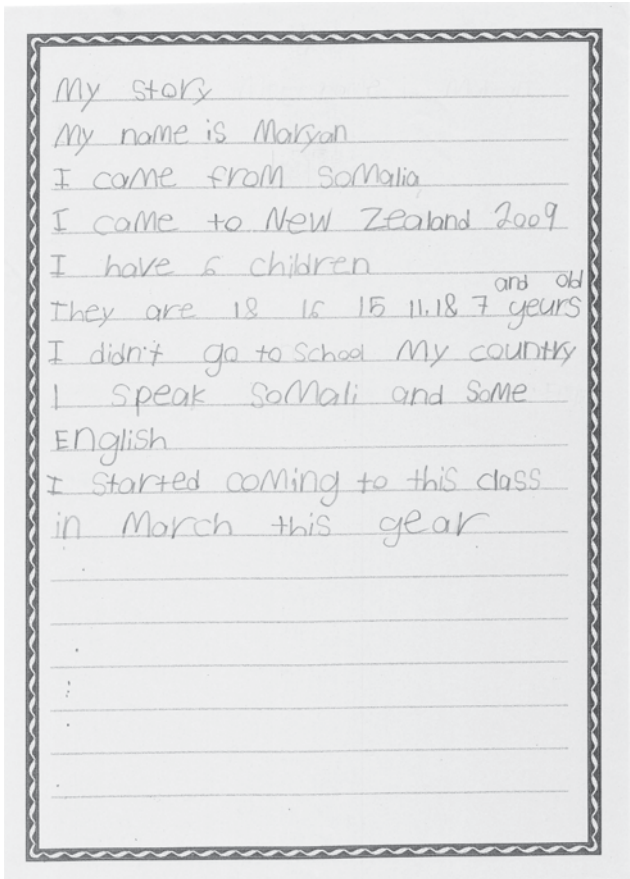 My story
My name is Maryan
I came from Somalia
I came to New Zealand 2009
I have 6 children
and old
they are 18 16 15 11.18 7 yeurs
I didn't go to School My country
I speak Somali and some
English
I started coming to this class
in March this gear